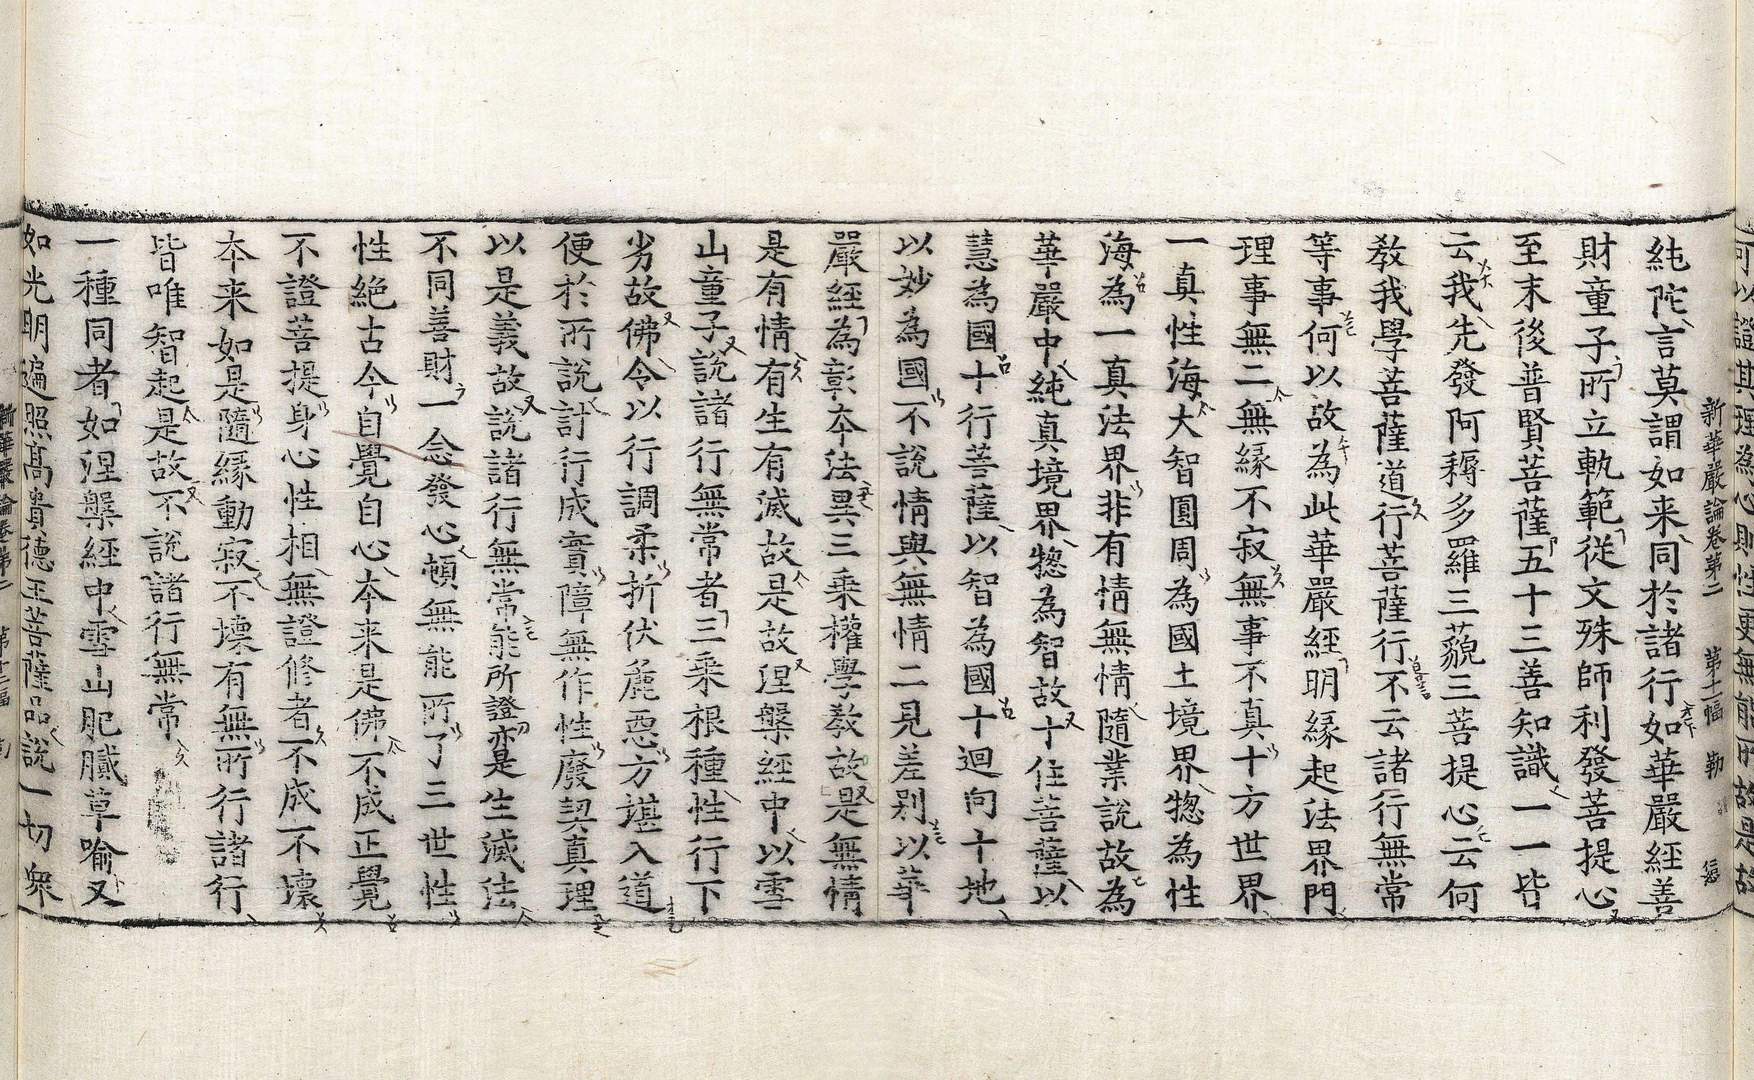 可以證其理為心則性更無能所故是故
新華嚴論卷第二 第十二幅 勒
純陀言莫謂如来同於諸行如華嚴經善
財童子所立軌範從文殊師利發菩提心
至末後普賢菩薩五十三善知識一一皆
云我先發阿耨多羅三藐三菩提心云何
教我學菩薩道行菩薩行不云諸行無常
等事何以故為此華嚴經明緣起法界門
理事無二無緣不寂無事不真十方世界
一真性海大智圓周為國土境界惣為性
海為一真法界非有情無情隨業說故為
華嚴中純真境界惣為智故十住菩薩以
慧為國十行菩薩以智為國十迴向十地
以妙為國不說情與無情二見差别以華
嚴經為彰夲法異三乘權學教故是無情
是有情有生有滅故是故涅槃經中以雪
山童子說諸行無常者三乘根種性行下
劣故佛令以行調柔折伏麁惡方堪入道
便於所說計行成實障無作性廢契真理
以是義故說諸行無常能所證亦是生滅法
不同善財一念發心頓無能所了三世性
性絕古今自覺自心夲来是佛不成正覺
不證菩提身心性相無證修者不成不壞
夲来如是隨緣動寂不壞有無所行諸行
皆唯智起是故不說諸行無常
一種同者如涅槃經中雪山肥膩草喻又
如光明遍照高貴德王菩薩品說一切衆
新華嚴論卷第二 第十三幅